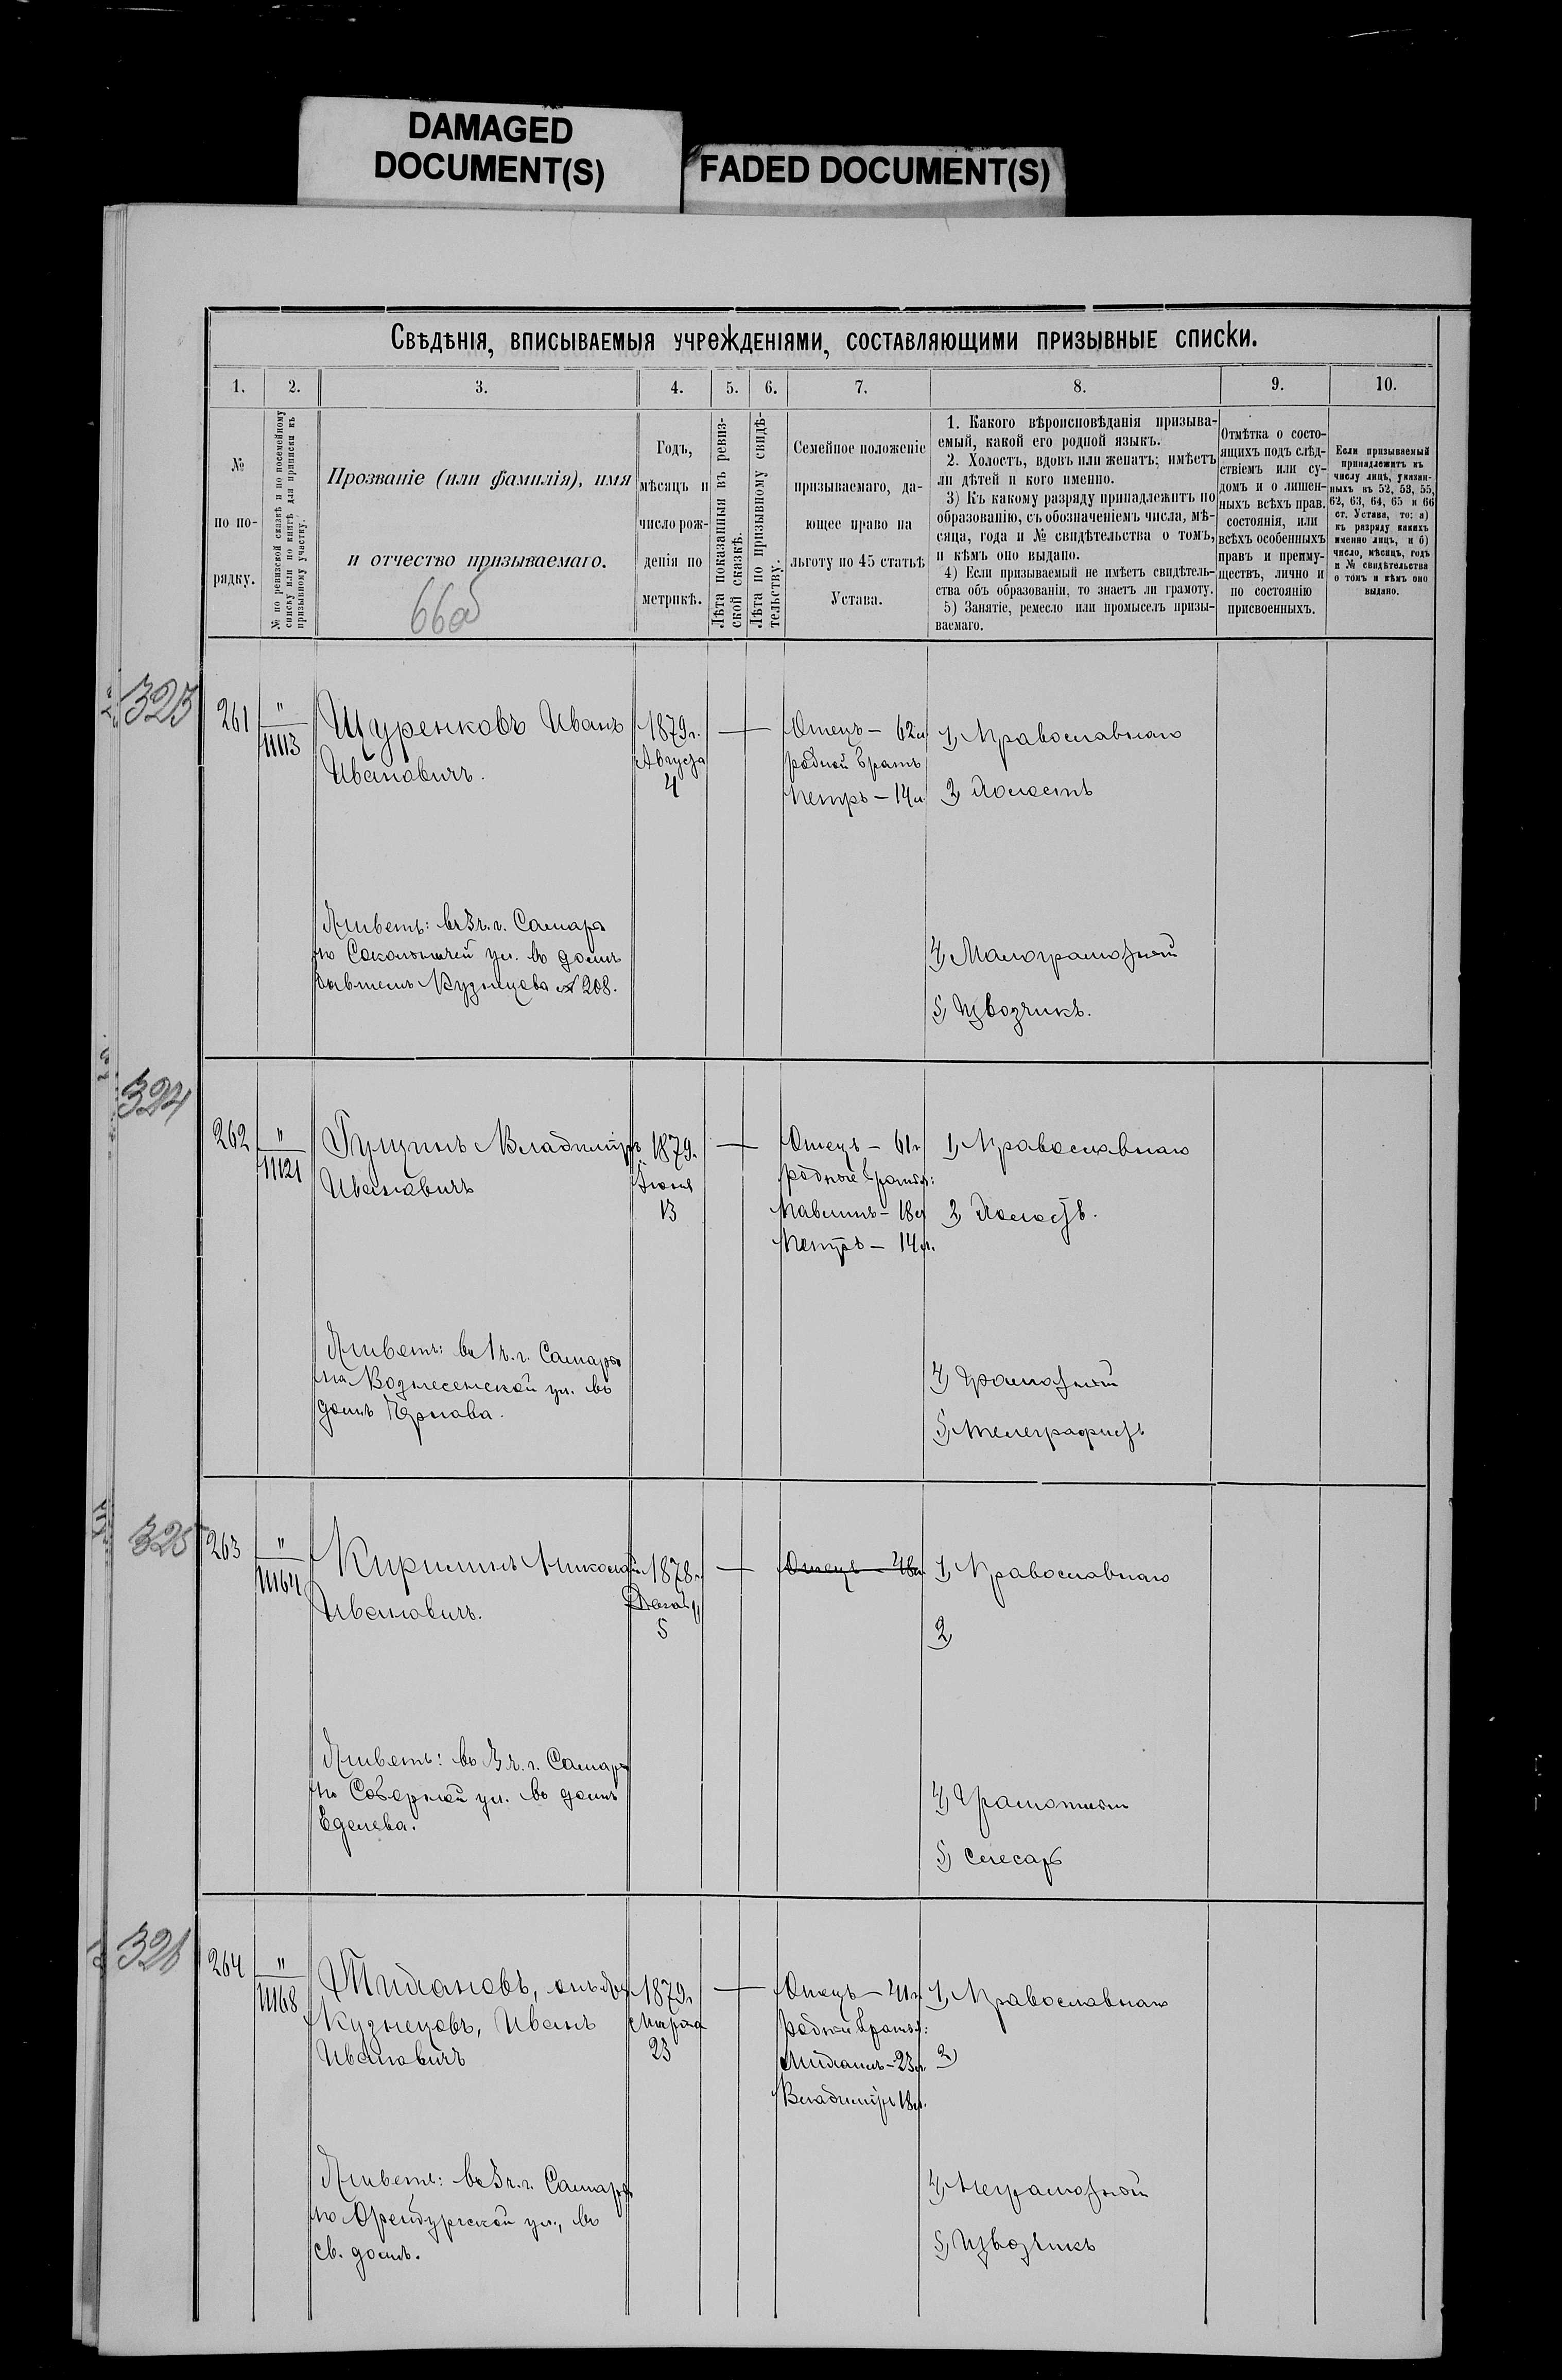 DAMAGED
DOCUMENT(S)
FADED DOCUMENT(S)
Свѣдѣнія, вписываемыя учрежденіями, составляющими призывные списки.
1. 2. 3. 4. 5. 6. 7. 8. 9. 10.
№
по по-
рядку.
№ по ревизской сказкѣ и по посемейному
списку или по книгѣ для приписки къ
призывному участку.
Прозваніе (или фамилія), имя
и отчество призываемаго.
66об
Годъ,
мѣсяцъ и
число рож-
денія по
метрикѣ.
Лѣта показанныя въ ревиз-
ской сказкѣ.
Лѣта по призывному свидѣ-
тельству.
Семейное положеніе
призываемаго, да-
ющее право на
льготу по 45 статьѣ
Устава.
1. Какого вѣроисповѣданія призыва-
емый, какой его родной языкъ.
2. Холостъ, вдовъ или женатъ; имѣетъ
ли дѣтей и кого именно.
3) Къ какому разряду принадлежитъ по
образованію, съ обозначеніемъ числа, мѣ-
сяца, года и № свидѣтельства о томъ,
и кѣмъ оно выдано.
4) Если призываемый не имѣетъ свидѣтель-
ства объ образованіи, то знаетъ ли грамоту.
5) Занятіе, ремесло или промыселъ призы-
ваемаго.
Отмѣтка о состо-
ящихъ подъ слѣд-
ствіемъ или су-
домъ и о лишен-
ныхъ всѣхъ прав.
состоянія, или
всѣхъ особенныхъ
правъ и преиму-
ществъ, лично и
по состоянію
присвоенныхъ.
Если призываемый
принадлежитъ къ
числу лицъ, указан-
ныхъ въ 52, 53, 55,
62, 63, 64, 65 и 66
ст. Устава, то: а)
къ разряду какихъ
именно лицъ, и б)
число, мѣсяцъ, годъ
и № свидѣтельства
о томъ и кѣмъ оно
выдано.
323
261
"
11113
Щуренковъ Иванъ
Ивановичъ.
1879г.
Августа
4
Отецъ — 62л
родной братъ
Петръ — 14л
1, Православнаго
2, Холостъ
Живетъ: въ 3 ч. г. Самары
по Сокольничей ул. въ домѣ
бывшемъ Кузнецова № 208.
4, Малограмотный
5, Извозчикъ.
324
262
"
11121
Владиміръ
Ивановичъ
1879г.
Іюня
13
Отецъ — 61г
родные братья:
Павелъ — 18л
Петръ — 14л.
1, Православнаго
2, Холостъ.
Живетъ: въ 1 ч. г. Самары
на Вознесенской ул. въ
домѣ
4, Грамотный
5, Телеграфистъ
325
263
"
11164
Кирилинъ Николай
Ивановичъ.
1878г.
Декабря
5
Отецъ — 48л
1, Православнаго
2,
Живетъ: въ 3 ч. г. Самары
по Соборной ул. въ домѣ
Еделева.
4, Грамотный
5, Слесарь
326
264
"
11168
Тихановъ, онъ же
Кузнецовъ, Иванъ
Ивановичъ
1879г
Марта
23
Отецъ — 41г
Родные братья:
Михаилъ — 23л.
Владиміръ 18л.
1, Православнаго
2,
Живетъ: въ 3 ч. г. Самары
по Оренбургской ул., въ
св. домѣ.
4, Неграмотный
5, Извозчикъ